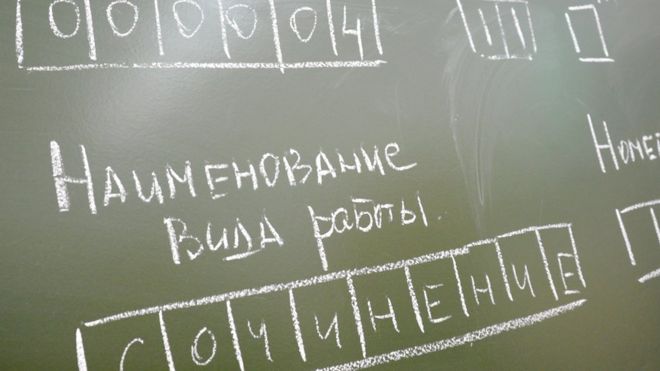 000004
Наименование
вида работы
СОЧИНЕНИЕ